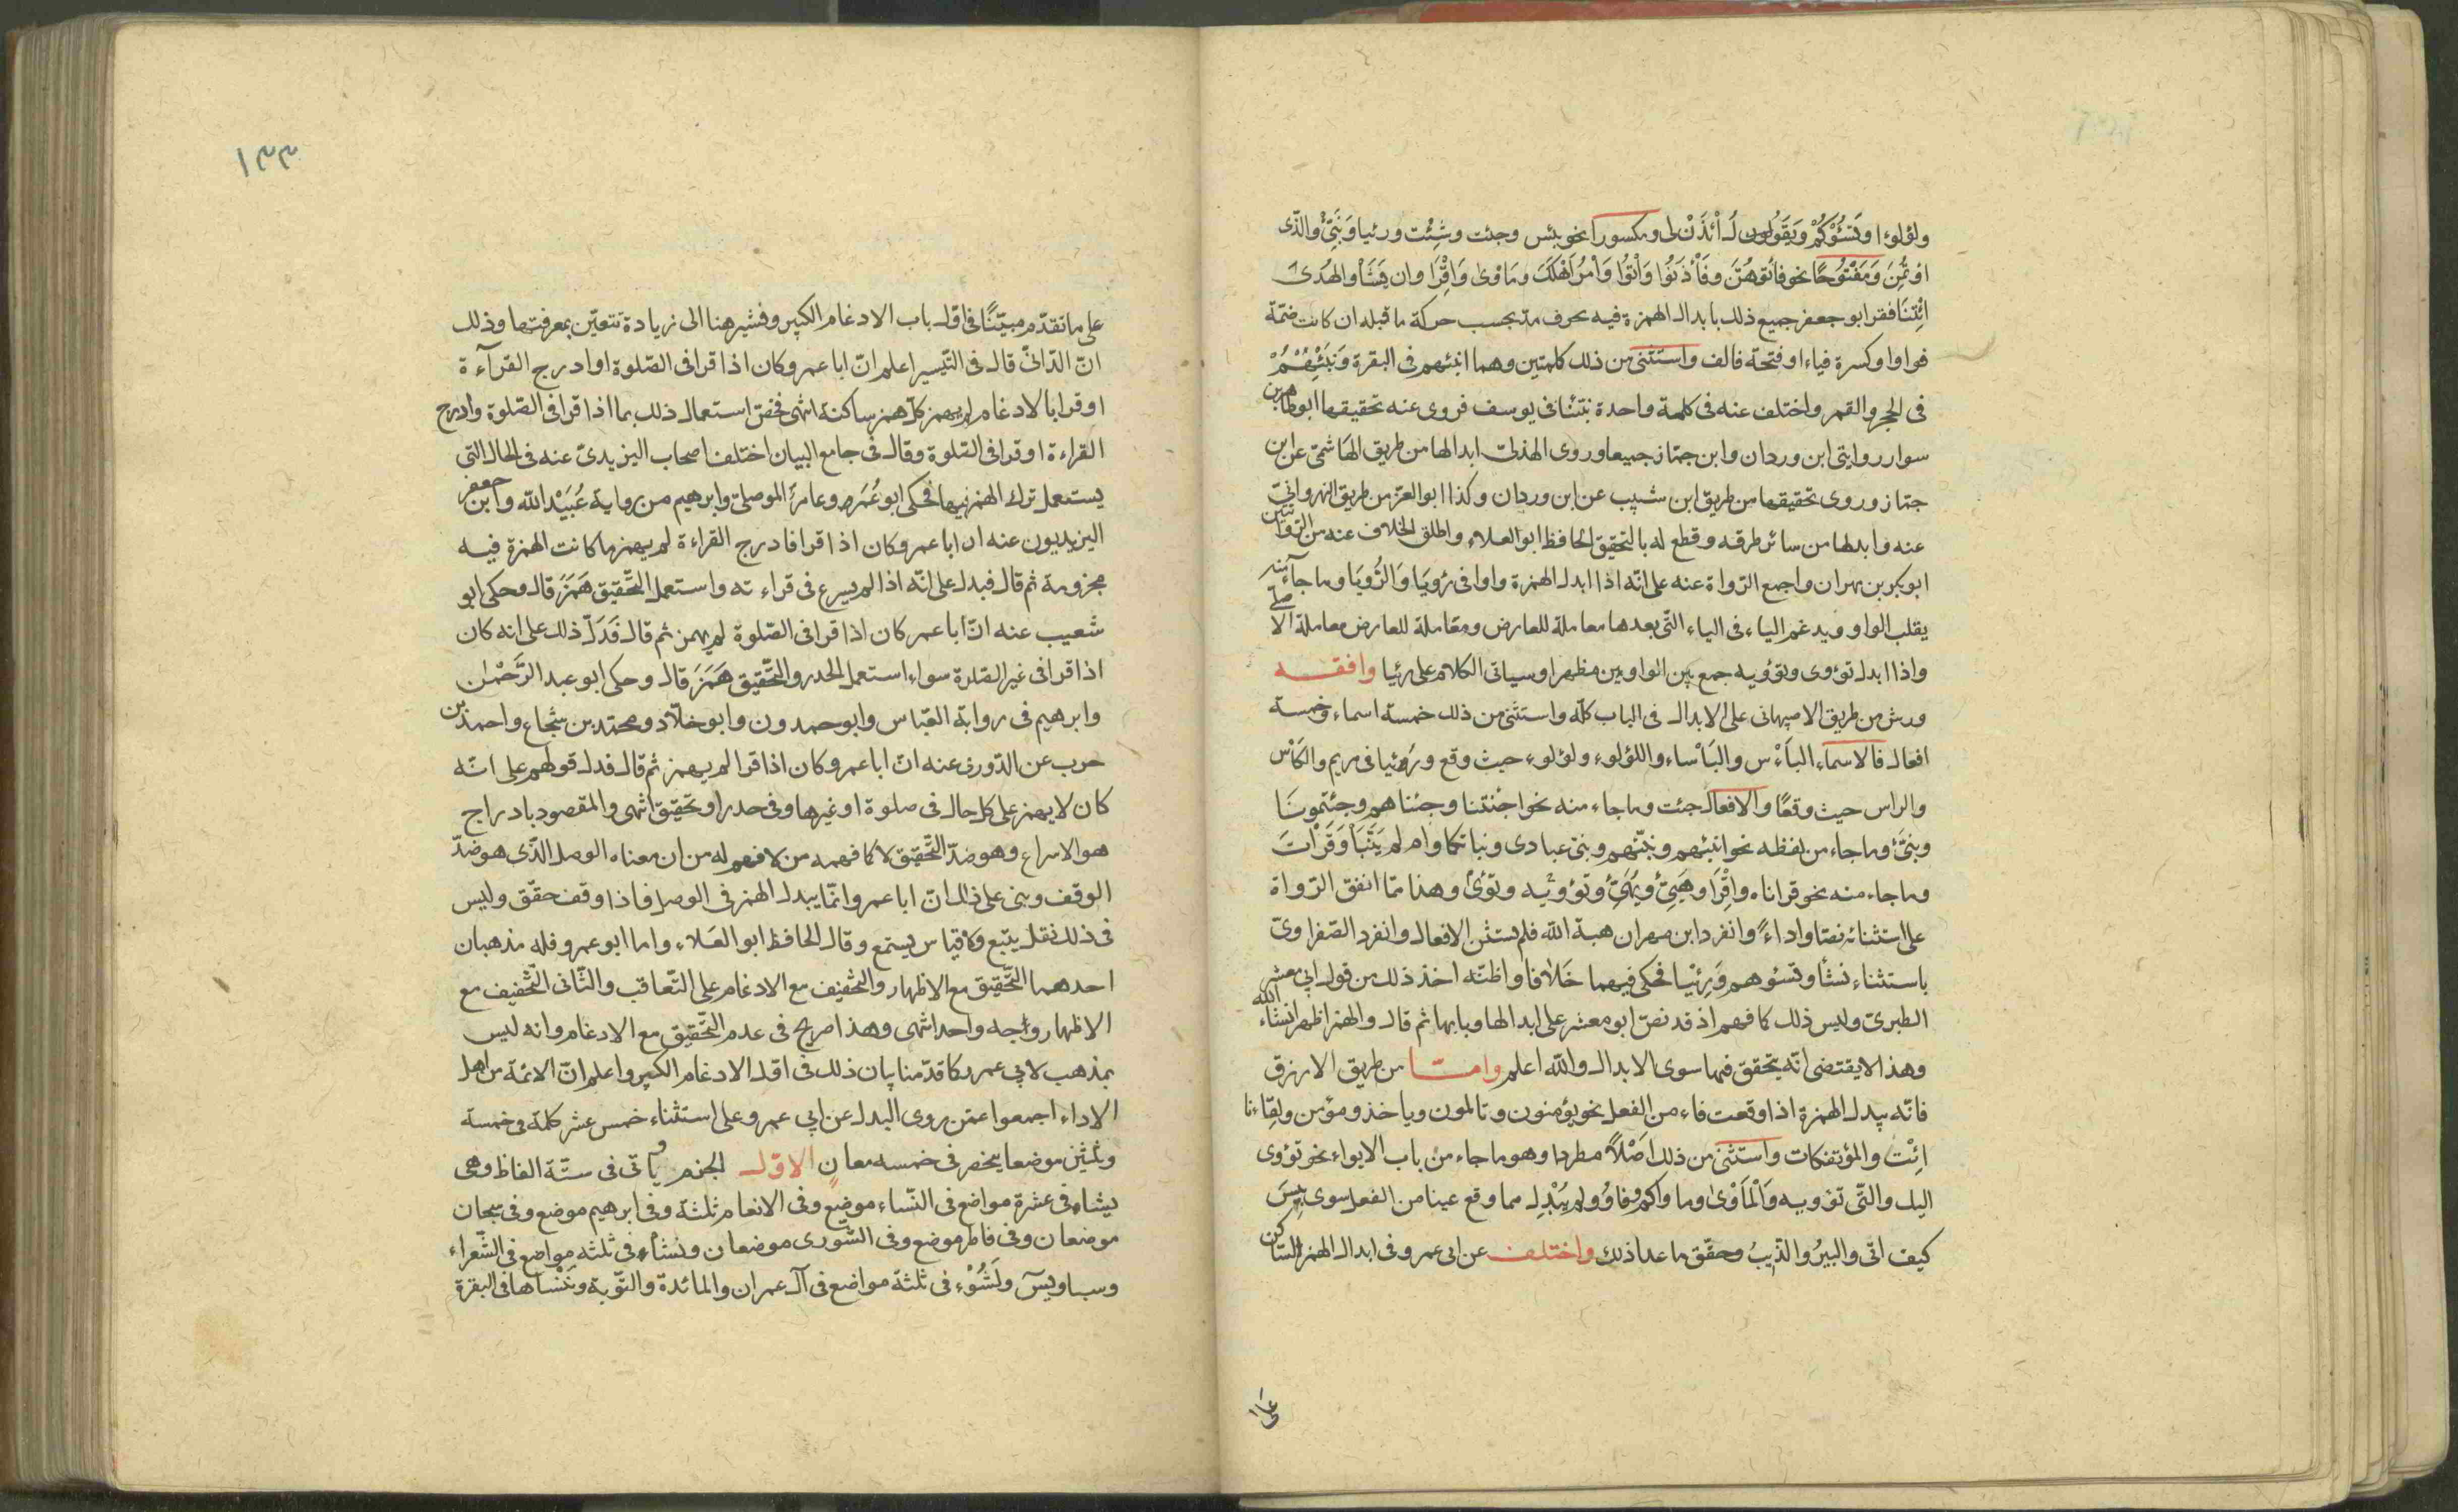 ولؤلوءا وتسُؤْكُمْ وَيَقُولون لـ أْئذَنْ لى ومكسورا نحو بئس وجئت وشِئت ورئيا وَنَبِّئْ والَّذى
اؤتُمِنَ وَمَفْتُوحًا نحو فاتوهُنَّ وفَأْذَنُوا وَأْتُوا وَأْمُرْ اَهْلَكَ ومَأوى وَاقْرَا وان يَشَأْ والهُدَى
ائِتنَا فقرا ابو جعفر جميع ذلك بابدال الهمزة فيه بحرف مد بحسب حركة ما قبله ان كانت ضمّة
فواوا وكسرة فياء او فتحة فالف واستثنى من ذلك كلمتين وهما انبئهم فى البقرة وَنَبِّئْهُمْ
فى الحجر والقمر واختلف عنه فى كلمة واحدة نبّئنا فى يوسف فروى عنه تحقيقها ابو طاهر بن
سوار من روايتى ابن وردان وابن جمّاز جميعا وروى الهذلىّ ابدالها من طريق الهاشمىّ عن ابن
جمّاز وروى تحقيقها من طريق ابن شبيب عن ابن وردان وكذا ابو العزّ من طريق النهروانىّ
عنه وابدلها من سائر طرقه وقطع له بالتحقيق الحافظ ابو العلاء واطلق الخلاف عنه من الروايتين
ابو بكر بن مهران واجمع الرّواة عنه على انّه اذا ابدل الهمزة واوا فى رُويَا وَالرُّويَا وما جاء منه
يقلب الواو ويدغم الياء فى الياء التى بعدها معاملة للعارض ومعاملة للعارض معاملة الاصلى
واذا ابدل تؤوى وتؤويه جمع بين الواوين مظهرا وسياتى الكلام على رئيا وافقـــه
ورش من طريق الاصبهانى على الابدال فى الباب كلّه واستثنى من ذلك خمسة اسماء وخمسة
افعال فالاسماء البَاْس والبَاْساء واللؤلوء ولؤلوء حيث وقع ورءيا فى مريم والكَاْس
والراس حيث وقعا والافعال جئت وما جاء منه نحو اجئتنا وجئناهم وجئتمونَا
ونبّئ وما جاء من لفظه نحو انبئهم ونبّئهم ونبئ عبادى ونباتكما وام لم يَنَبَّأْ وَقَرَاْتَ
وما جاء منه نحو قراناه واقْرَا وهَيِّئْ ويهَيِّئْ وتؤويه وتؤىْ وهذا ممّا اتفق الرّواة
على استثنائه نصّا واداءً وانفرد ابن مهران هبة الله فلم يستثن الافعال وانفرد الصّفراوىّ
باستثناء نشأ وتسُؤهم وَرِئيا فحكى فيهما خلافا واظنّه اخذ ذلك من قول ابى معشر
الطبرىّ وليس ذلك كما فهم اذ قد نصّ ابو معشر على ابدالها وبابها ثم قال والهمز اظهر انشاء الله
وهذا لا يقتضى انّه يتحقق فيها سوى الابدال والله اعلم وامــا من طريق الازرق
فانّه يبدل الهمزة اذا وقعت فاء من الفعل نحو يؤمنون وتالمون وياخذ ومؤمن ولِقَاءنا
ائِتْ والمؤتفكات واستثنى من ذلك اَصْلاً مطردا وهو ما جاء من باب الايواء نحو تؤوى
اليك والتّى تؤويه وَالْمَأْوىٰ وما واكم وفاوُو ولم يُبْدِل مما وقع عينا من الفعل سوى بِيسَ
كيف اتى والبيرُ والذِّيبُ وحقّق ما عدا ذلك واختلـف عن ابى عمرو فى ابدال الهمز الساكن
على
١٣٣
على ما تقدّم مبيّنًا فى اوّل باب الادغام الكبير ونشير هنا الى زيادة تتعيّن بمعرفتها وذلك
انّ الدّانىّ قال فى التّيسير اعلم انّ ابا عمرو كان اذا قرا فى الصّلوة او ادرج القرآءة
او قرا بالادغام لم يهمز كلّ همز ساكنة انتهى فخصّ استعمال ذلك بما اذا قرا فى الصّلوة وادرج
القراءة او قرا فى الصّلوة وقال فى جامع البيان اختلف اصحاب اليزيدىّ عنه فى الحال التى
يستعمل ترك الهمز فيها فحكى ابو عُمَر وعامرُ الموصلىّ وابرهيم من رواية عُبَيْد الله وابن جعفر
اليزيديون عنه ان ابا عمرو كان اذا قرا فادرج القراءة لم يهمز ما كانت الهمزة فيه
مجزومة ثم قال فيدل على انّه اذا لم يسرع فى قراءته واستعمل التَّحقيق هَمَزَ قال وحكى ابو
شعيب عنه انّ ابا عمر كان اذا قرا فى الصّلوة لم يهمز ثم قال فَدَلّ ذلك على انه كان
اذا قرا فى غير الصّلوة سواء استعمل الحدر والتَّحقيق هَمَزَ قال وحكى ابو عبد الرَّحْمٰن
وابرهيم فى رواية العبّاس وابو حمدون وابو خلّاد ومحمّد بن شجاع واحمد بن
حرب عن الدّورى عنه انّ ابا عمرو كان اذا قرا لم يهمز ثم قال فدل قولهم على انّه
كان لا يهمز على كل حال فى صلوة او غيرها وفى حدر او تحقيق انتهى والمقصود بادراج
هو الاسراع وهو ضدّ التَّحقيق لا كما فهمه من لا فهم له من ان معناه الوصل الّذى هو ضدّ
الوقف وبنى على ذلك انّ ابا عمرو انّما يبدل الهمز فى الوصل فاذا وقف حقّق وليس
فى ذلك نقل يتبع ولا قياس يستمع وقال الحافظ ابو العَلاء واما ابو عمرو فله مذهبان
احدهما التَّحقيق مع الاظهار والتّخفيف مع الادغام على التّعاقب والثّانى التّخفيف مع
الاظهار وجه واحد انتهى وهذا صريح فى عدم التَّحقيق مع الادغام وانه ليس
بمذهب لابى عمرو كما قدّمنا بيان ذلك فى اوّل الادغام الكبير واعلم انّ الائمة من اهل
الاداء اجمعوا عمّن روى البدل عن ابى عمرو على استثناء خمس عشر كلمة فى خمسة
وثلثين موضعا ينحصر فى خمسه معان الاوّل الجزم وياتى فى ستّة الفاظ وهى
يشاء فى عشرة مواضع فى النّساء موضع وفى الانعام ثلثة وفى ابرهيم موضع وفى سبحان
موضعان وفى فاطر موضع وفى الشّورى موضعان ونشأ فى ثلثه مواضع فى الشّعراء
وسبا ويسٓ وتَسُؤْ فى ثلثة مواضع فى آل عمران والمائدة والتّوبة ونَنْسَاها فى البقرة